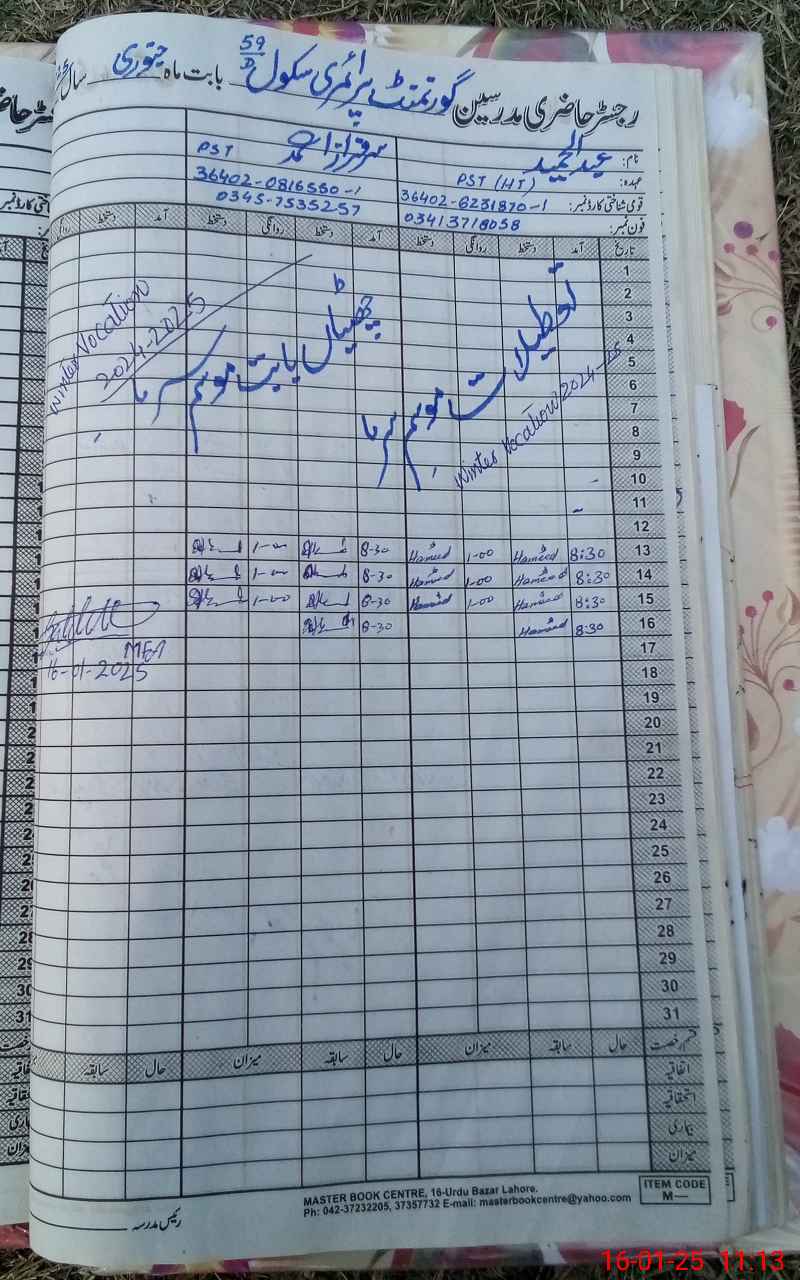 رجسٹر حاضری مدرسین گورنمنٹ پرائمری سکول 59/D بابت ماہ جنوری سال
نام: عبدالحمید
سرفراز احمد
عہدہ: PST (HT)
PST
قومی شناختی کارڈ نمبر: 36402-6231870-1
36402-0816550-1
فون نمبر: 03413718058
0345-7535257
تاریخ آمد دستخط روانگی دستخط آمد دستخط روانگی دستخط آمد دستخط
1
2
3
4
5
6
7
8
9
10
11
12
تعطیلات موسم سرما
Winter Vocation 2024-25
چھٹیاں بابت موسم سرما
Winter Vocation
2024-2025
13 8:30 Hameed 1-00 Hameed 8-30 1-00
14 8:30 Hameed 1-00 Hameed 8-30 1-00
15 8:30 Hameed 1-00 Hameed 8-30 1-00
16 8:30 Hameed 8-30
MEA
16-01-2025
17
18
19
20
21
22
23
24
25
26
27
28
29
30
31
قسم رخصت حال سابقہ میزان حال سابقہ میزان حال سابقہ
اتفاقیہ
استحقاقیہ
بیماری
میزان
ITEM CODE
M—
MASTER BOOK CENTRE, 16-Urdu Bazar Lahore.
Ph: 042-37232205, 37357732 E-mail: masterbookcentre@yahoo.com
رئیس مدرسہ
16-01-25 11:13